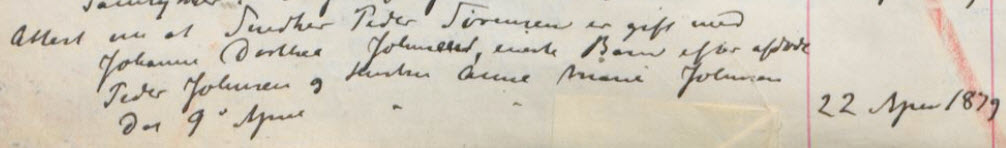 Attest om at Snedker Peder Sörensen er gift med
Johanne Dorthea Johnsen, eneste Barn efter afdöde
Peder Johnsen og Hustru Anne Marie Johnsen
Das 9' April " "
22 April 1879